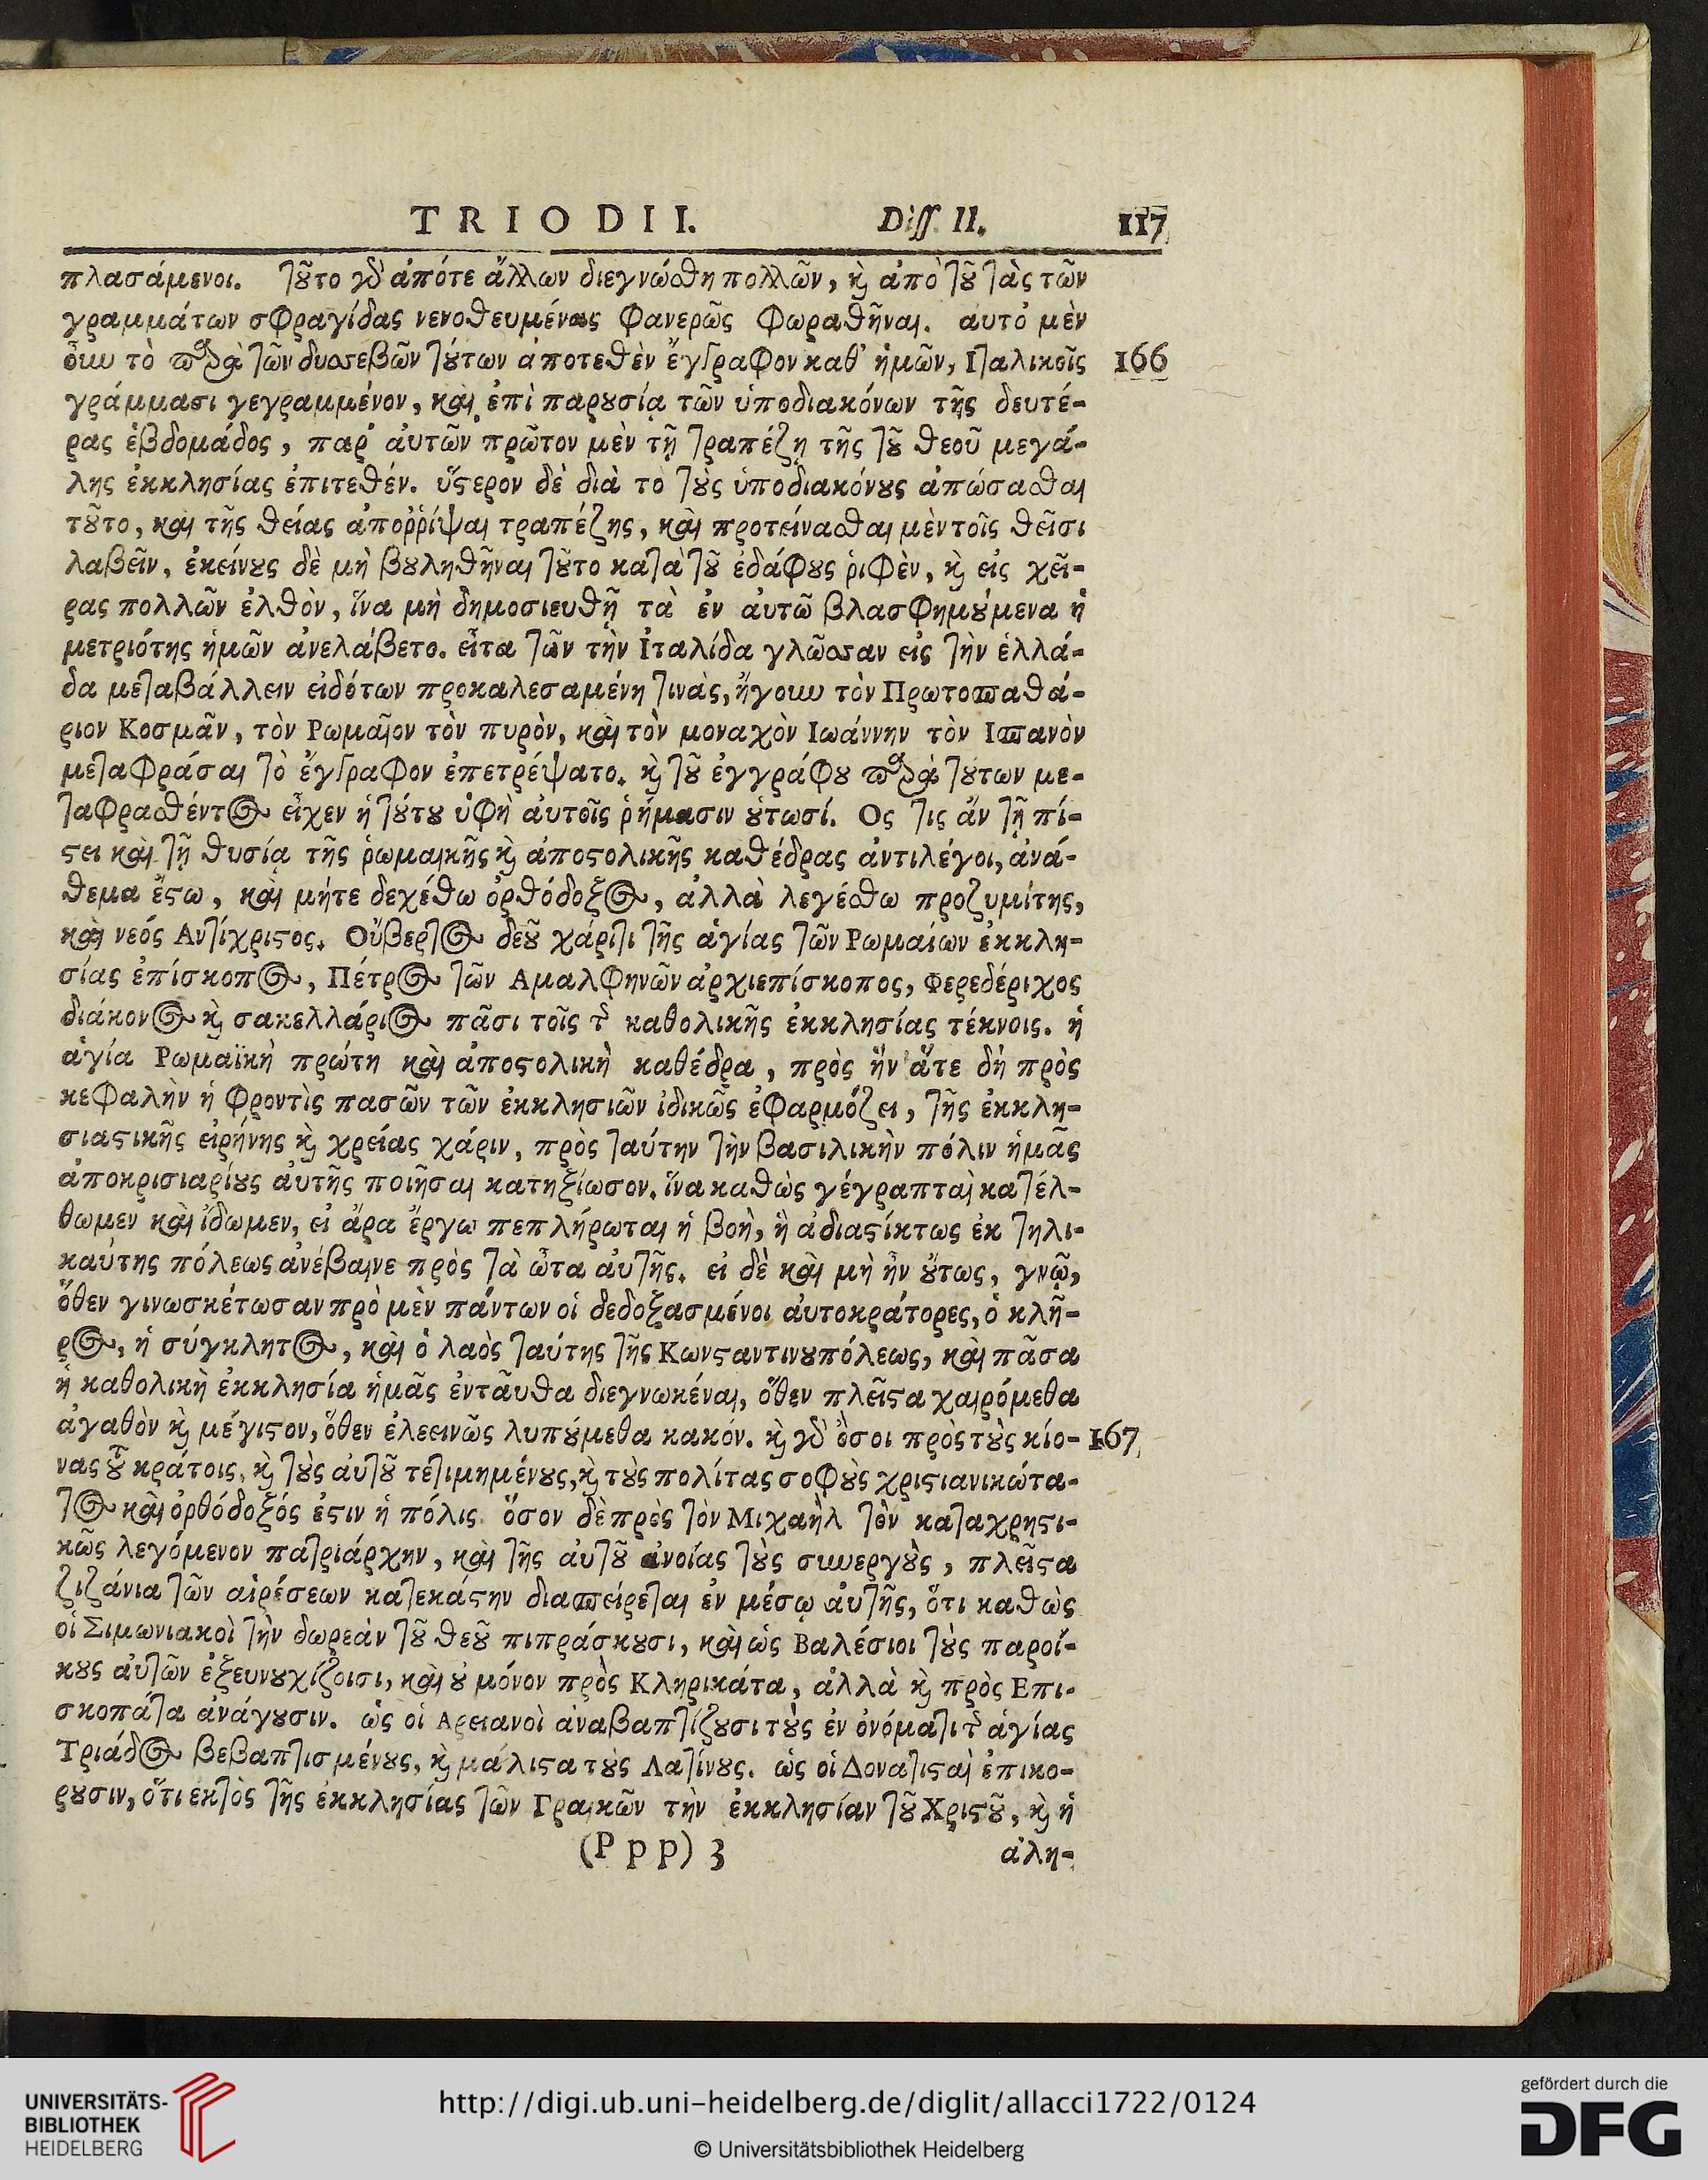 TRIODII. Diss. II. 117
πλασάμενοι. τȣ̃το γδ̀ ἀπότε ἄλλων διεγνώσθη πολλῶν, κ̀ ἀπὸ τȣ̃ τὰς τῶν
γραμμάτων σφραγίδας νενοθευμένας φανερῶς φωραθῆναι. αυτὸ μὲν
οὖν τὸ παρὰ τῶν δυσσεβῶν τȣ́των ἀποτεθὲν ἔγγραφον καθ᾽ ἡμῶν, Ιταλικοῖς 166
γράμμασι γεγραμμένον, καὶ ἐπὶ παρȣσίᾳ τῶν ὑποδιακόνων τῆς δευτέ-
ρας ἑβδομάδος, παρ᾽ ἀυτῶν πρῶτον μὲν τῇ τραπέζῃ τῆς τȣ̃ θεοῦ μεγά-
λης ἐκκλησίας ἐπιτεθέν. ὕϛερον δὲ διὰ τὸ τȣ̀ς ὑποδιακόνȣς ἀπώσασθαι
τȣ̃το, καὶ τῆς θείας ἀποῤῥίψαι τραπέζης, καὶ προτείνασθαι μὲν τοῖς θεῖσι
λαβεῖν, ἐκείνȣς δὲ μὴ βȣληθῆναι τȣ̃το κατὰ τȣ̃ ἐδάφȣς ῥιφὲν, κ̀ εἰς χεῖ-
ρας πολλῶν ἐλθὸν, ἵνα μὴ δημοσιευθῇ τὰ ἐν ἀυτῶ βλασφημȣ́μενα ἡ
μετριότης ἡμῶν ἀνελάβετο. εἶτα τῶν τὴν Ἰταλίδα γλῶσσαν εἰς τὴν ἑλλά-
δα μεταβάλλειν εἰδότων προκαλεσαμένη τινὰς, ἤγουν τὸν Πρωτοσπαθά-
ριον Κοσμᾶν, τὸν Ρωμαῖον τὸν πυρὸν, καὶ τὸν μοναχὸν Ιωάννην τὸν Ισπανὸν
μεταφράσαι τὸ ἔγγραφον ἐπετρέψατο. κ̀ τȣ̃ ἐγγράφȣ παρὰ τȣ́των με-
ταφρασθέντος εἶχεν ἡ τȣ́τȣ ὑφὴ ἀυτοῖς ῥήμασιν ȣ̔τωσί. Ος τις ἄν τῇ πί-
ϛει καὶ τῇ θυσίᾳ τῆς ῥωμαικῆς κ̀ ἀποϛολικῆς καθέδρας ἀντιλέγοι, ἀνά-
θεμα ἔϛω, καὶ μήτε δεχέσθω ὀρθόδοξος, ἀλλὰ λεγέσθω προζυμίτης,
καὶ νεός Αντίχριϛος. Οὔβερτος δεȣ͂ χάριτι τῆς ἁγίας τῶν Ρωμαίων ἐκκλη-
σίας ἐπίσκοπος, Πέτρος τῶν Αμαλφηνῶν ἀρχιεπίσκοπος, Φερεδέριχος
διάκονος κ̀ σακελλάριος πᾶσι τοῖς τ̃ καθολικῆς ἐκκλησίας τέκνοις. ἡ
ἁγία Ρωμαϊκὴ πρώτη καὶ ἀποϛολικὴ καθέδρα, πρὸς ἣν ἅτε δὴ πρὸς
κεφαλὴν ἡ φροντὶς πασῶν τῶν ἐκκλησιῶν ἰδικῶς ἐφαρμόζει, τῆς ἐκκλη-
σιαϛικῆς εἰρήνης κ̀ χρείας χάριν, πρὸς ταύτην τὴν βασιλικὴν πόλιν ἡμᾶς
ἀποκρισιαρίȣς ἀυτῆς ποιῆσαι κατηξίωσον. ἵνα καθὼς γέγραπται κατέλ-
θωμεν καὶ ἴδωμεν, εἰ ἄρα ἔργω πεπλήρωται ἡ βοὴ, ἣ ἀδιαϛίκτως ἐκ τηλι-
καύτης πόλεως ἀνέβαινε πρὸς τὰ ὦτα ἀυτῆς. εἰ δὲ καὶ μὴ ἦν ȣ̔́τως, γνῷ,
ὅθεν γινωσκέτωσαν πρὸ μὲν πάντων οἱ δεδοξασμένοι ἀυτοκράτορες, ὁ κλῆ-
ρος, ἡ σύγκλητος, καὶ ὁ λαὸς ταύτης τῆς Κωνϛαντινȣπόλεως, καὶ πᾶσα
ἡ καθολικὴ ἐκκλησία ἡμᾶς ἐνταῦθα διεγνωκέναι, ὅθεν πλεῖϛα χαιρόμεθα
ἀγαθὸν κ̀ μέγιϛον, ὅθεν ἐλεεινῶς λυπȣ́μεθα κακόν. κ̀ γδ̀ ὅσοι πρὸς τȣ̀ς κίο- 167
νας τȣ̃ κράτοις, κ̀ τȣ̀ς ἀυτȣ̃ τετιμημένȣς, κ̀ τȣ̀ς πολίτας σοφȣ̀ς χριϛιανικώτα-
τος καὶ ὀρθόδοξός ἐϛιν ἡ πόλις. ὅσον δὲ πρὸς τὸν Μιχαὴλ τὸν καταχρηϛι-
κῶς λεγόμενον πατριάρχην, καὶ τῆς ἀυτȣ̃ ἀνοίας τȣ̀ς συνεργȣ̀ς, πλεῖϛα
ζιζάνια τῶν αἱρέσεων κατεκάϛην διασπείρεται ἐν μέσῳ ἀυτῆς, ὅτι καθὼς
οἱ Σιμωνιακοὶ τὴν δωρεὰν τȣ̃ θεȣ̃ πιπράσκȣσι, καὶ ὡς Βαλέσιοι τȣ̀ς παροί-
κȣς ἀυτῶν ἐξευνȣχίζοισι, καὶ ȣ̓ μόνον πρὸς Κληρικάτα, ἀλλὰ κ̀ πρὸς Επι-
σκοπάτα ἀνάγȣσιν. ὡς οἱ Αρειανοὶ ἀναβαπτίζȣσι τȣ̀ς ἐν ὀνόματι τ̃ ἁγίας
Τριάδος βεβαπτισμένȣς, κ̀ μάλιϛα τȣ̀ς Λατίνȣς. ὡς οἱ Δονατιϛαὶ ἐπικο-
ρȣσιν, ὅτι ἐκτὸς τῆς ἐκκλησίας τῶν Γραικῶν τὴν ἐκκλησίαν τȣ̃ Χριϛȣ̃, κ̀ ἡ
(Ppp) 3 ἀλη-
UNIVERSITÄTS-
BIBLIOTHEK
HEIDELBERG
http://digi.ub.uni-heidelberg.de/diglit/allacci1722/0124
© Universitätsbibliothek Heidelberg
gefördert durch die
DFG